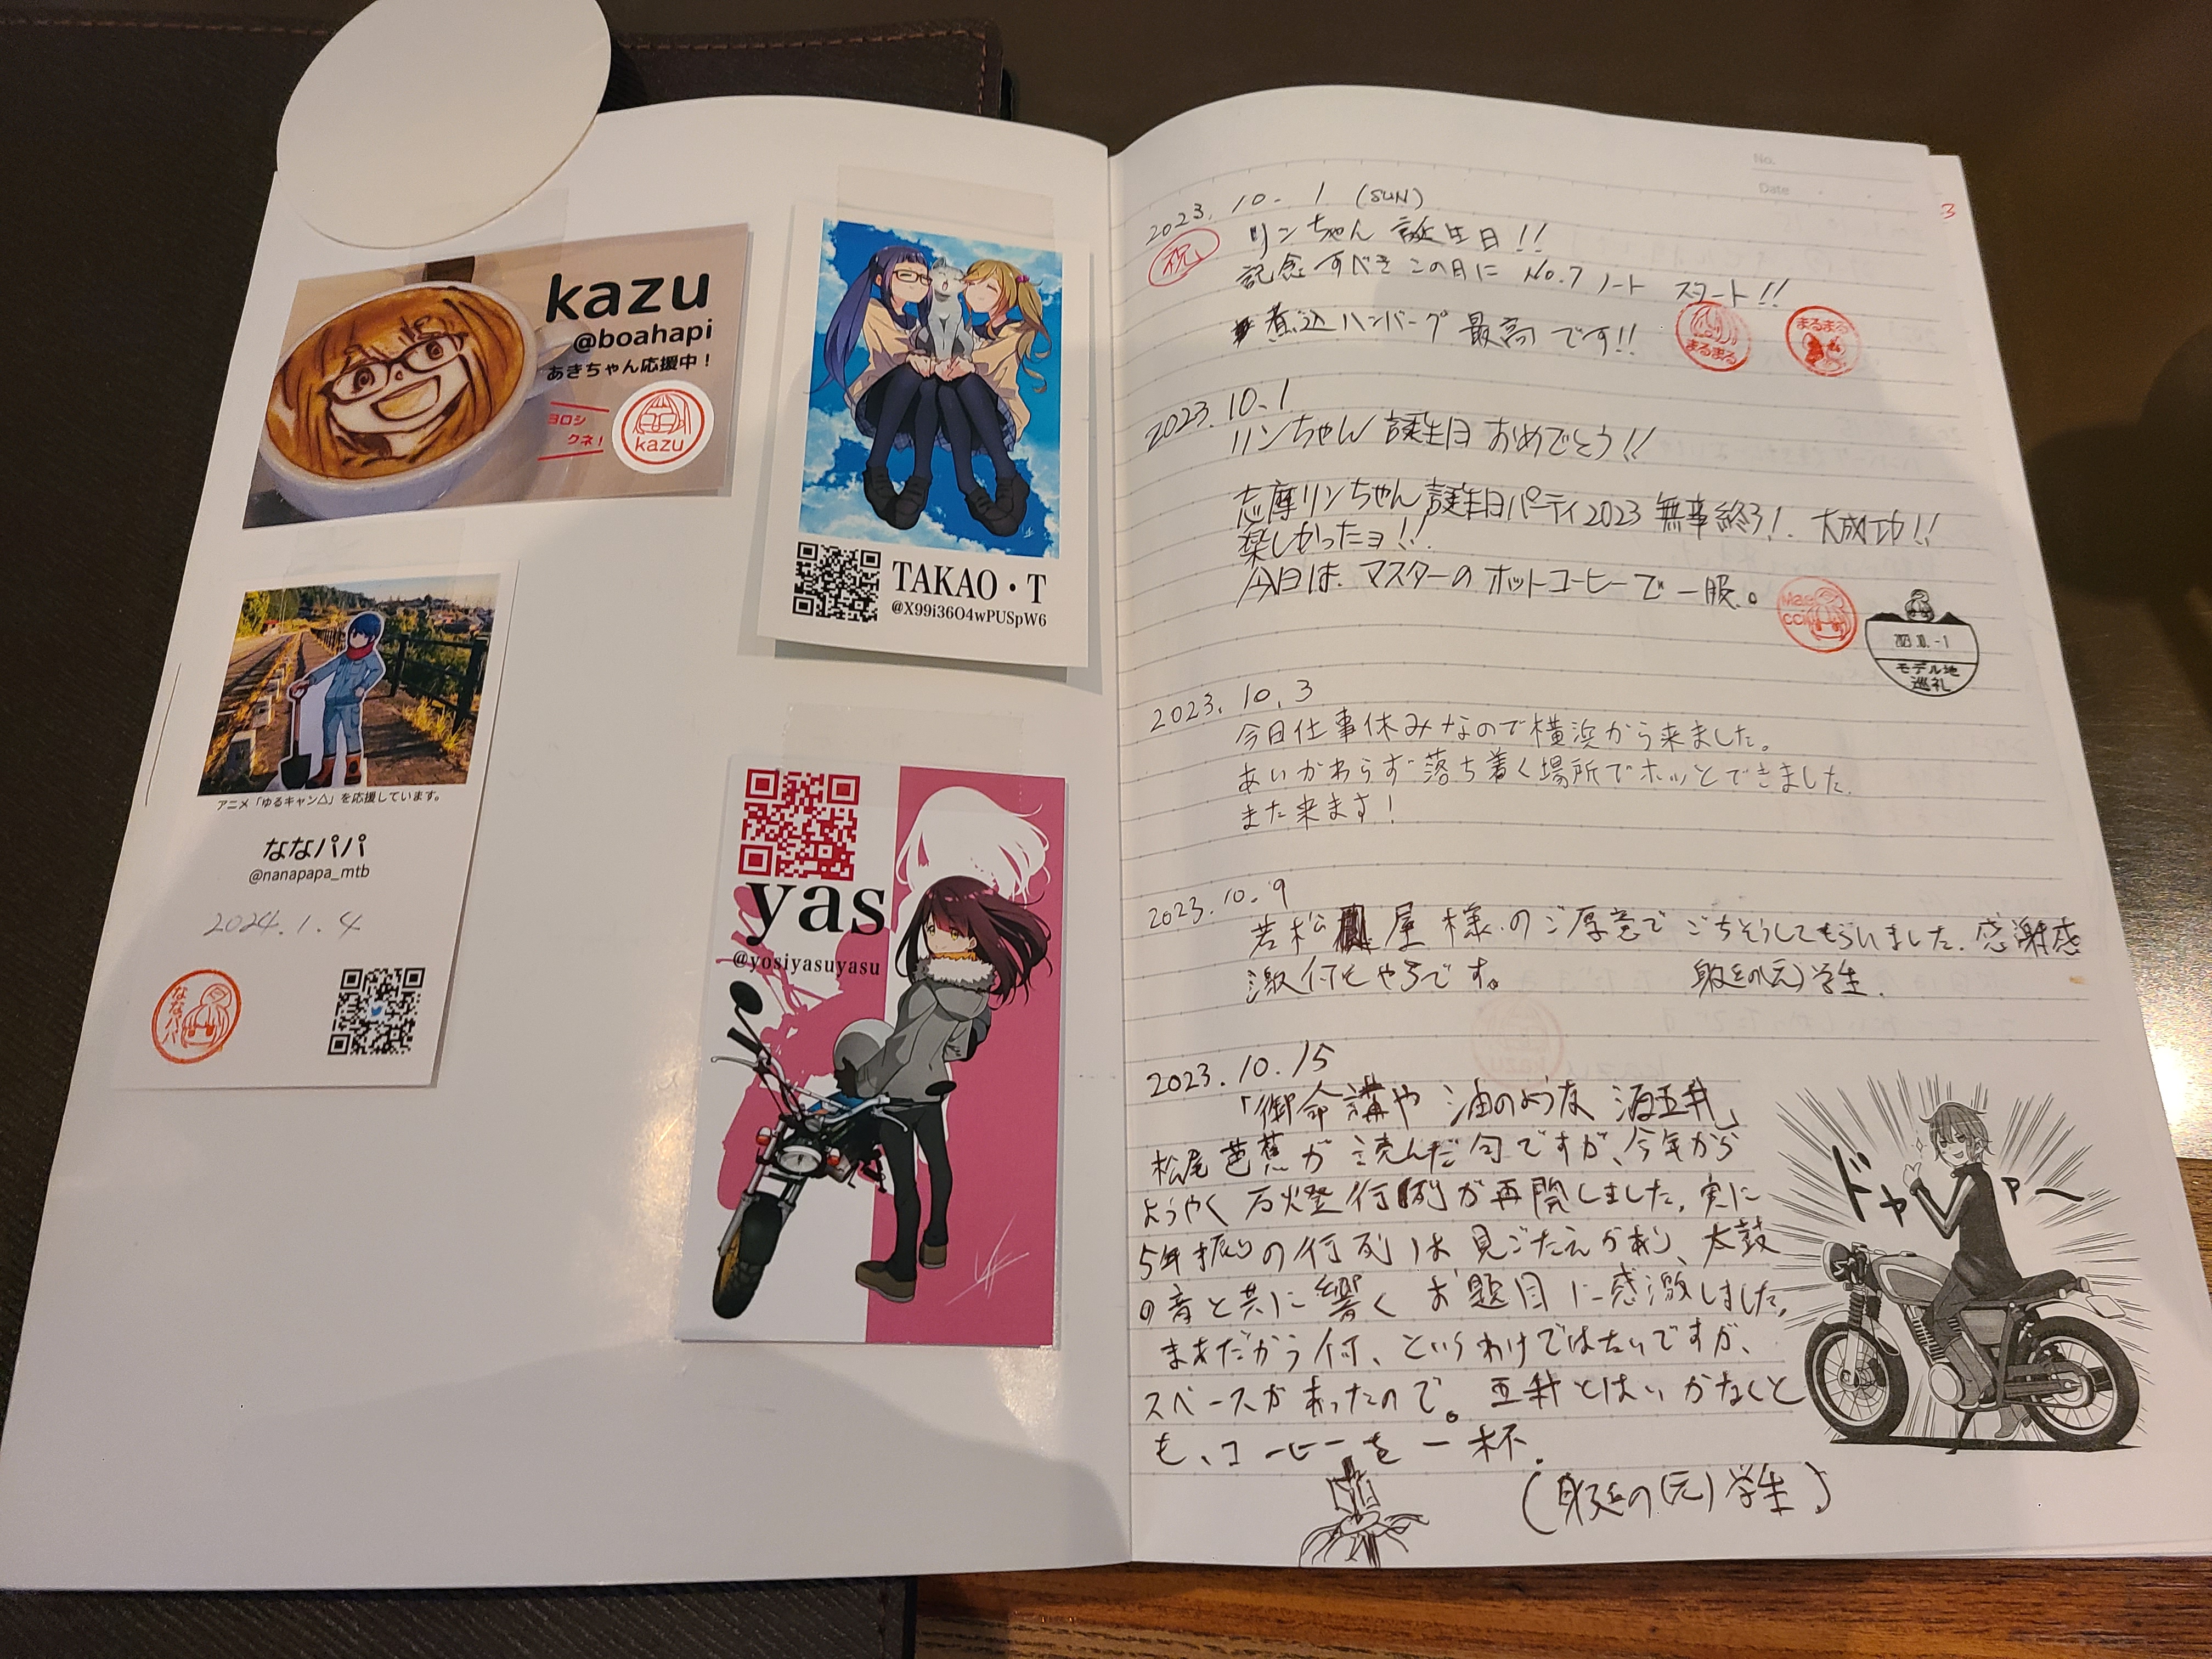 kazu
@boahapi
あきちゃん応援中！
ヨロシ
クネ！
kazu
TAKAO・T
@X99i36O4wPUSpW6
アニメ「ゆるキャン△」を応援しています。
ななパパ
@nanapapa_mtb
2024.1.4
ななパパ
yas
@yosiyasuyasu
No.
Date
3
2023.10.1 (SUN)
祝 リンちゃん 誕生日!!
記念すべきこの日に No.7ノート スタート!!
煮込ハンバーグ 最高です!!
まるまる
まるまる
2023.10.1
リンちゃん 誕生日おめでとう!!
志摩リンちゃん誕生日パーティ2023 無事終了! 大成功!!
楽しかったョ!!
今日は、マスターのホットコーヒーで一服。
2023.10.-1
モデル地
巡礼
2023.10.3
今日仕事休みなので横浜から来ました。
あいかわらず落ち着く場所でホッとできました。
また来ます!
2023.10.9
若松屋様のご厚意でごちそうしてもらいました。感謝感
激何とやらです。 身延の(元)学生.
2023.10.15
「御命講や 油のような 酒五升」
松尾芭蕉が読んだ句ですが、今年から
ようやく万燈行列が再開しました。実に
5年振りの行列は見ごたえがあり、太鼓
の音と共に響くお題目に感激しました。
まぁだから何、というわけではないですが、
スペースがあったので。五升とはいかなくと
も、コーヒーを一杯.
(身延の(元)学生)
ドヤァー